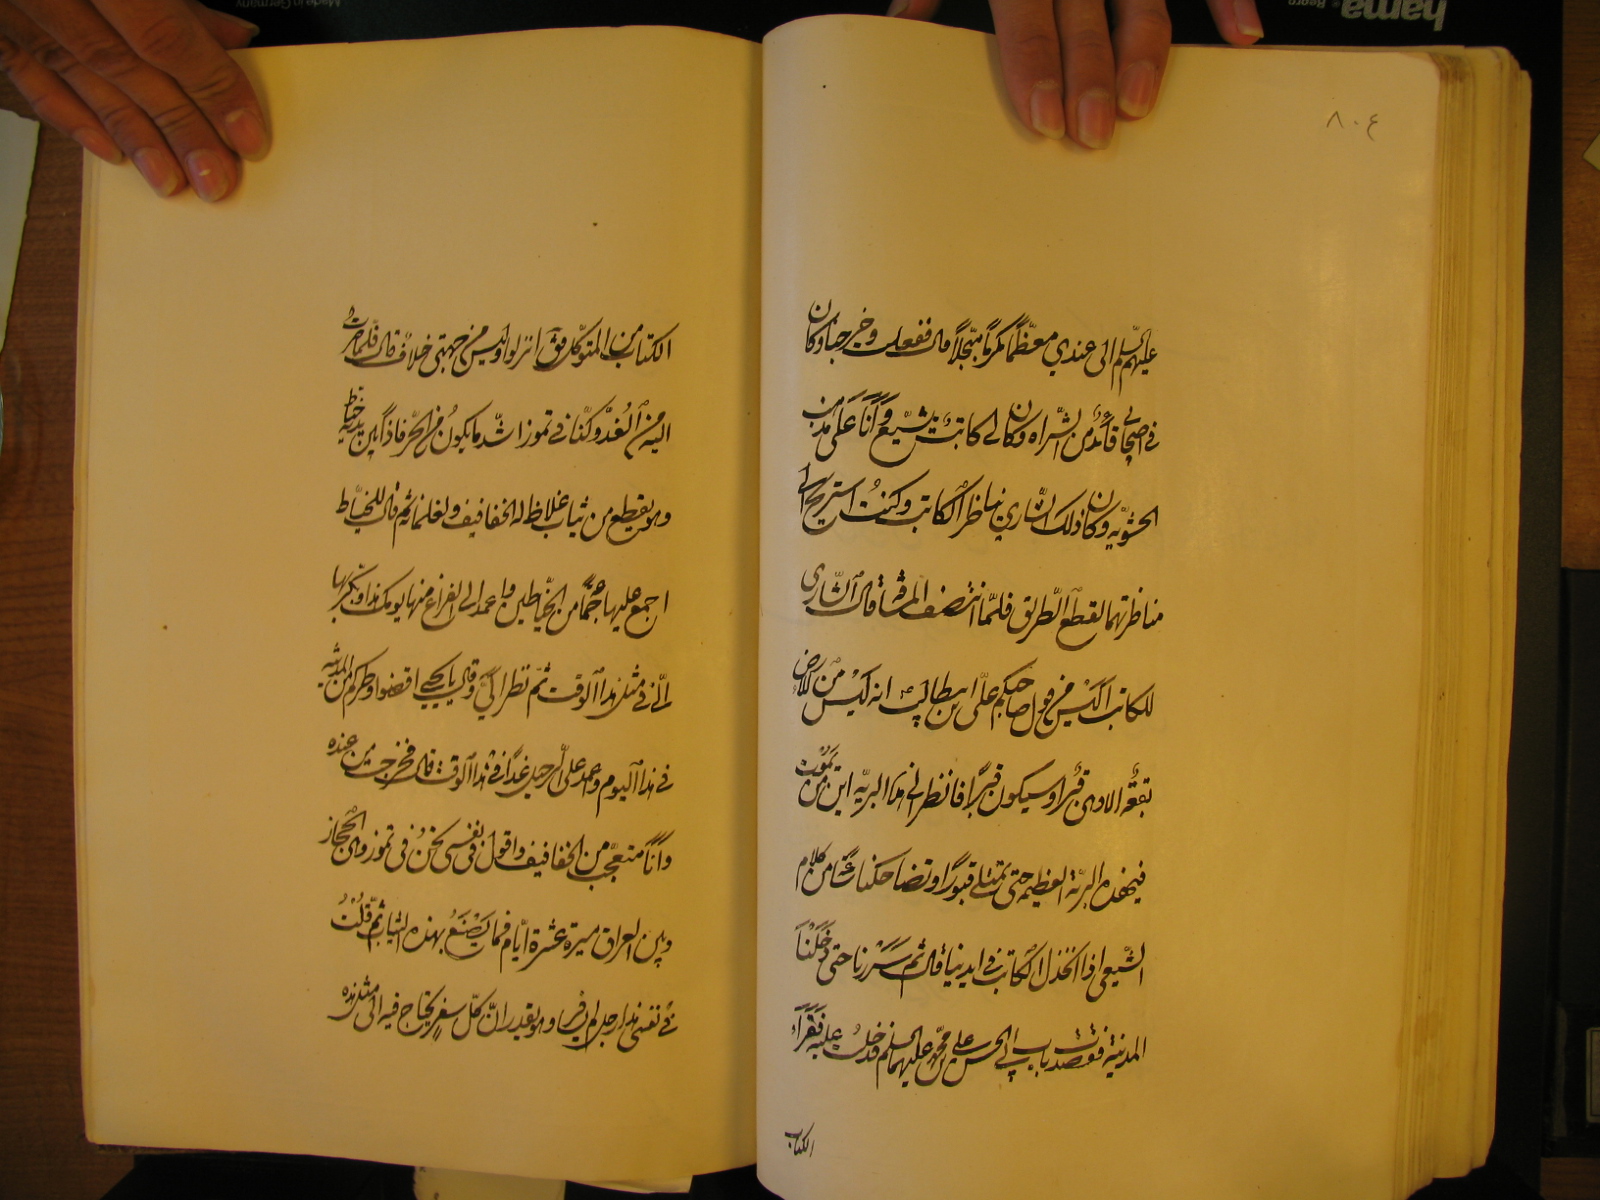 hama
Made in Germany
٨٠٤
عليهم السلم الى عندي معظّماً مكرّماً مبجّلاً قال ففعلت وخرجنا وكان
في اصحابي قائد من الشراه وكان لي كاتب يتشيّع وانا على مذهب
الحشويّه وكان ذلك الشاري يناظر الكاتب وكنت استريح الى
مناظرتهما لقطع الطريق فلمّا انتصف المسافة قال الشاري
للكاتب اليس من قول صاحبكم علي ابن ابيطالب انه ليس من الارض
بقعة الا وهي قبراً وسيكون قبراً فانظر الى هذا البريّه اين من يموت
في هذه البريّة العظيمه حتى تمتلئ قبوراً وتضاحكنا ساعة من كلام
الشيعي اذا انخذل الكاتب في ايدينا قال ثم سرنا حتى دخلنا
المدينة فقصدت باب ابي الحسن علي بن محمّد عليهما السلم فدخلت عليه فقراء
الكتاب
الكتاب من المتوكّل فق انزلوا وليس من جهتي خلاف قال فلما صرت
اليه من الغد وكنّا في تموز اشدّ ما يكون من الحرّ فاذا بين يديه خياط
وهو يقطع من ثياب غلاظ له الخفاتيف ولغلمانه ثم قال للخيّاط
اجمع عليها جمعاً من الخيّاطين واعمد الى الفراغ منها يومك هذا وبكّر بها
الّي في مثل هذا الوقت ثمّ نظر اليّ وقال يا يحيى اقضوا وطركم من المدينة
في هذا اليوم واعمد على الرحيل غداً في هذا الوقت قال فخرجت من عنده
وانا متعجّب من الخفاتيف واقول في نفسي نحن في تموز والحجاز
وبين العراق مسيرة عشرة ايّام فما يصنع بهذه الثياب ثمّ قلت
في نفسي هذا رجل لم يسافر وهو يقدر انّ كلّ سفر يحتاج فيه الى مثل هذه